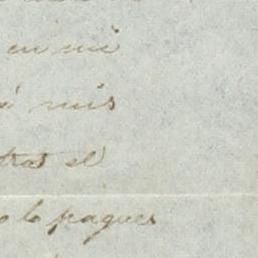 en mi
á mis
tras el
lo pagues